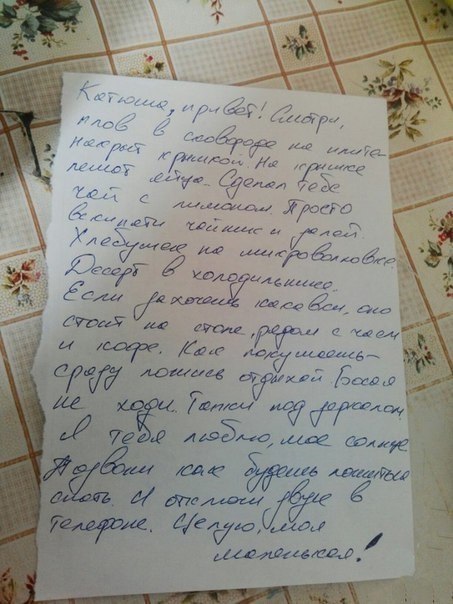 Катюша, привет! Смотри,
плов в сковороде на плите
накрыт крышкой. На крышке
лежат яйца. Сделал тебе
чай с лимоном. Просто
вскипяти чайник и долей
Хлебушек на микроволновке.
Десерт в холодильнике.
Если захочешь какавки, оно
стоит на столе, рядом с чаем
и кофе. Как покушаешь -
сразу ложись отдыхай. Босая
не ходи. Тапки под зеркалом
Я тебя люблю, мое солнце
Позвони как будешь ложиться
спать. И отключи звук в
телефоне. Целую, моя
маленькая!